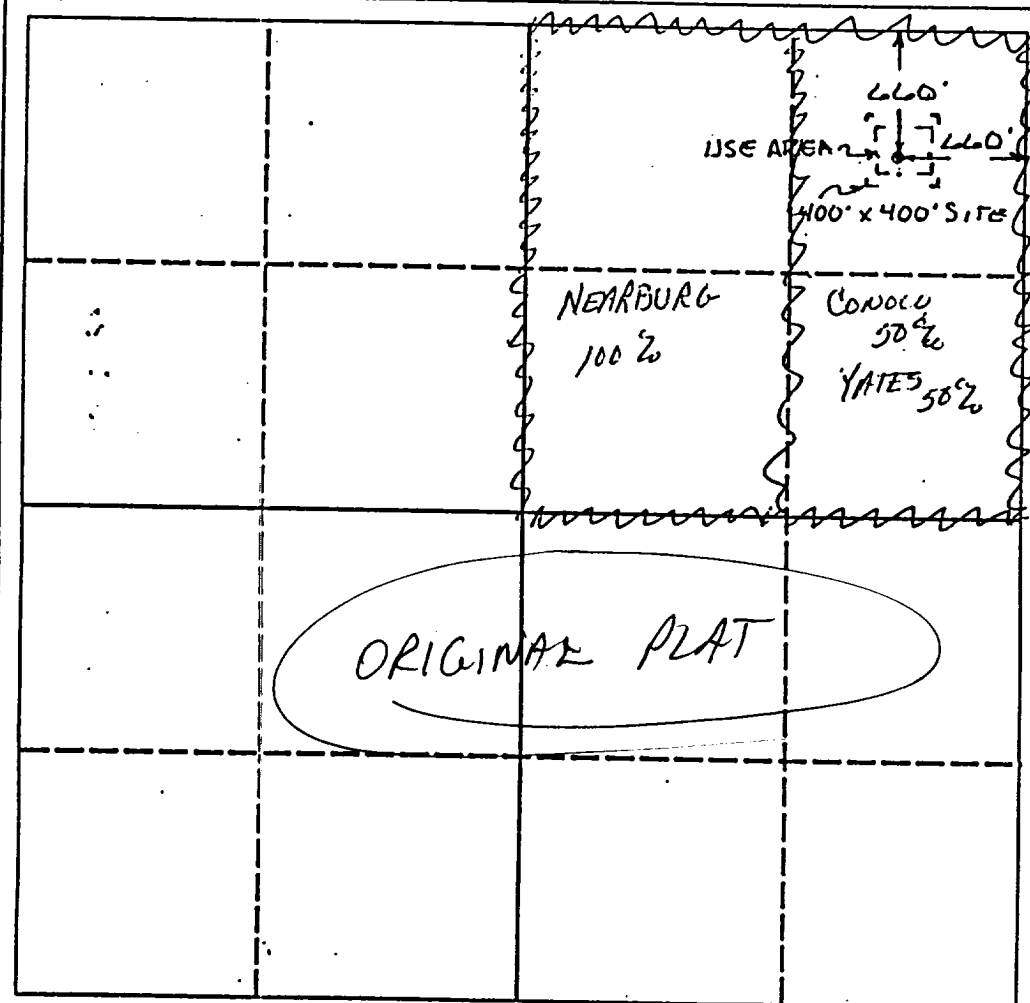 660'
USE AREA
660'
400' x 400' SITE
NEARBURG
100%
CONOCO
50%
YATES 50%
ORIGINAL PLAT